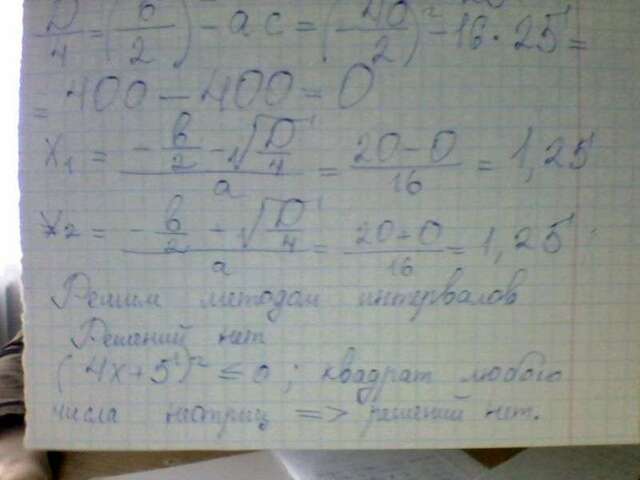 D/4 = (b/2)² - ac = (-40/2)² - 16 · 25 =
= 400 - 400 = 0
x₁ = (-b/2 - √(D/4))/a = (20 - 0)/16 = 1,25
x₂ = (-b/2 - √(D/4))/a = (20 - 0)/16 = 1,25
Решим методом интервалов
Решений нет
(4x+5)² ≤ 0; квадрат любого
числа неотриц => решений нет.